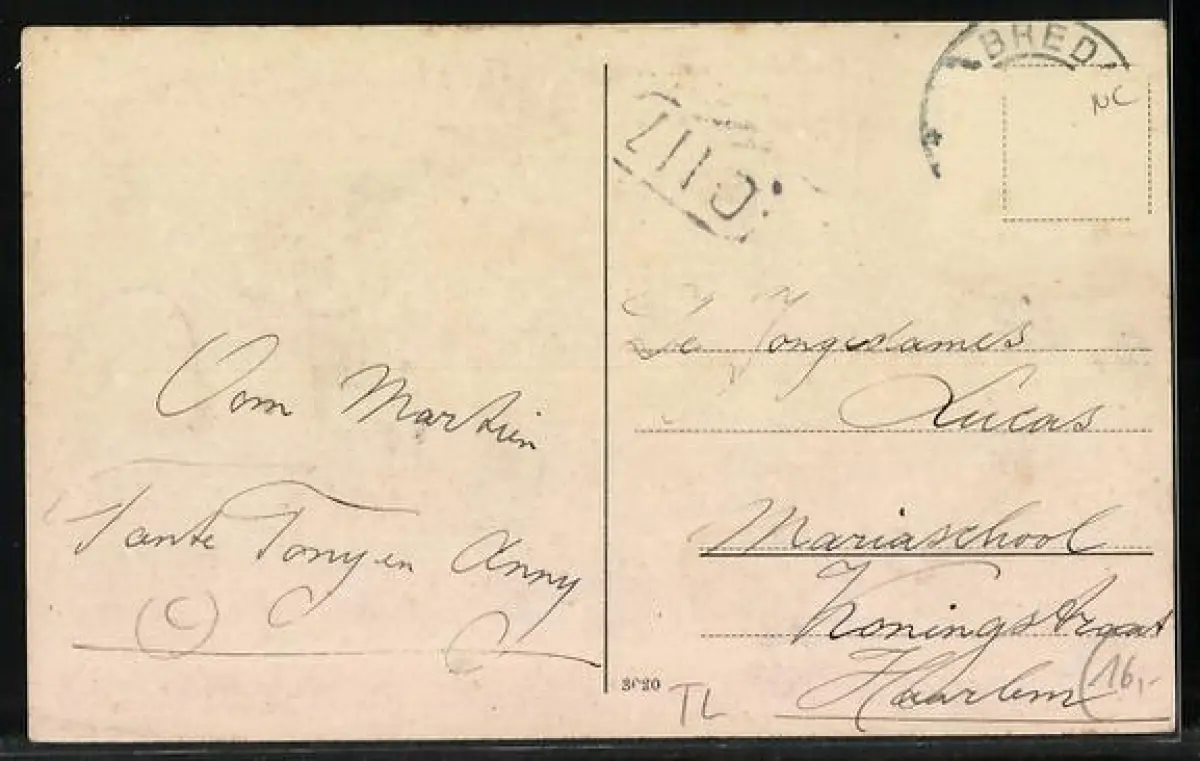 Oom Martien
Tante Tony en Anny
BRED
NC
De Jongedames
Lucas
Mariaschool
Koningstraat
Haarlem
16,-
TL